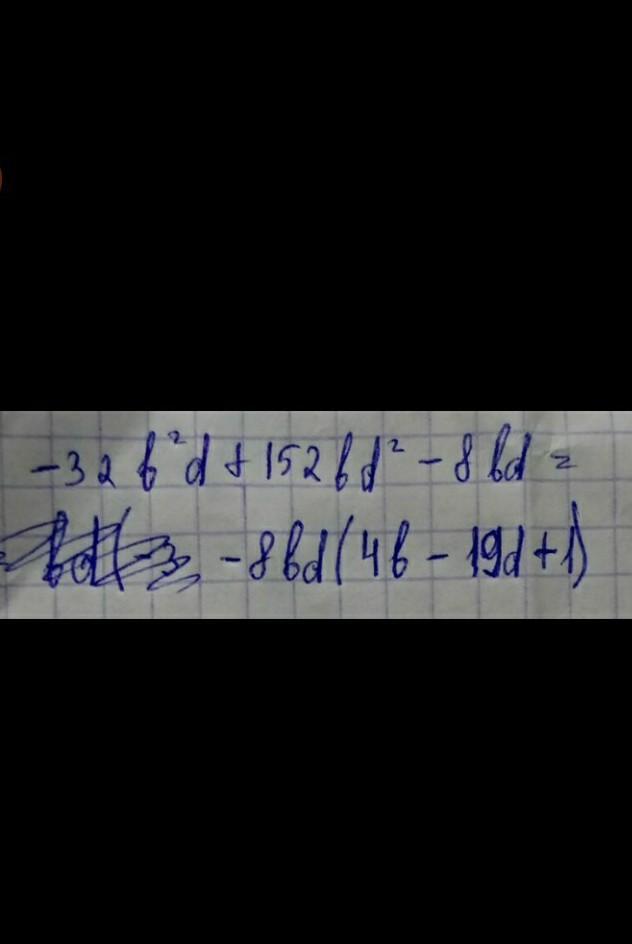 -32b²d + 152bd² - 8bd =
-8bd(4b - 19d + 1)